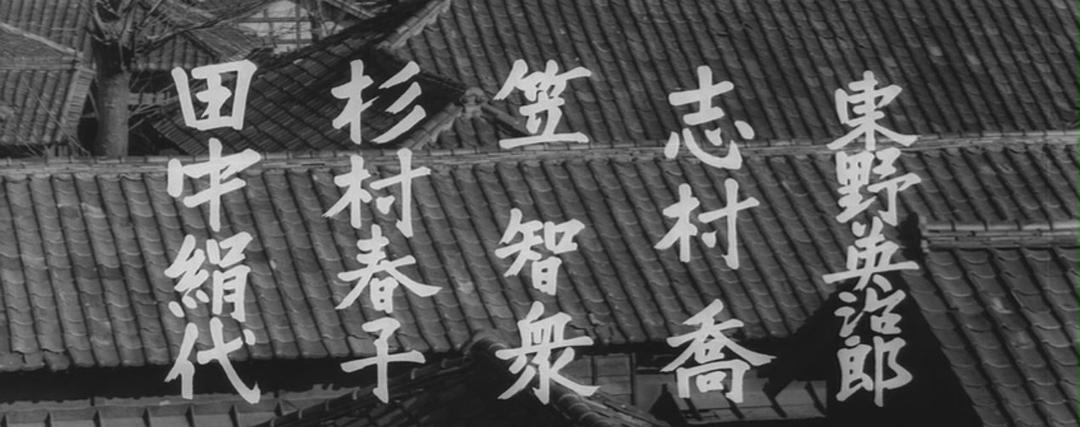 東野英治郎
志村喬
笠智衆
杉村春子
田中絹代